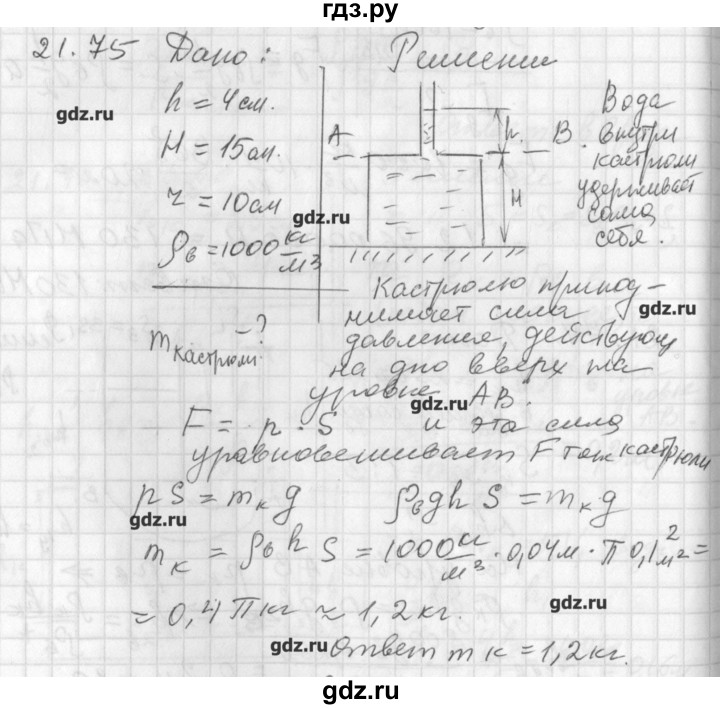 гдз.ру
21.75 Дано: Решение
h = 4 см.
H = 15 см.
r = 10 см
ρв = 1000 кг/м³
mкастрюли - ?
A h. B
H
Вода
внутри
кастрюли
удерживает
сама
себя.
Кастрюлю припод-
нимает сила
давления, действующ
на дно вверх на
уровне AB.
F = p · S и эта сила
уравновешивает Fтяж кастрюли
pS = mкg ρвgh S = mкg
mк = ρв h S = 1000 кг/м³ · 0,04 м · π 0,1² м² =
= 0,4 π кг ≈ 1,2 кг.
Ответ mк = 1,2 кг.
gdz.ru
gdz.ru
gdz.ru
gdz.ru
gdz.ru
gdz.ru
gdz.ru
gdz.ru
gdz.ru